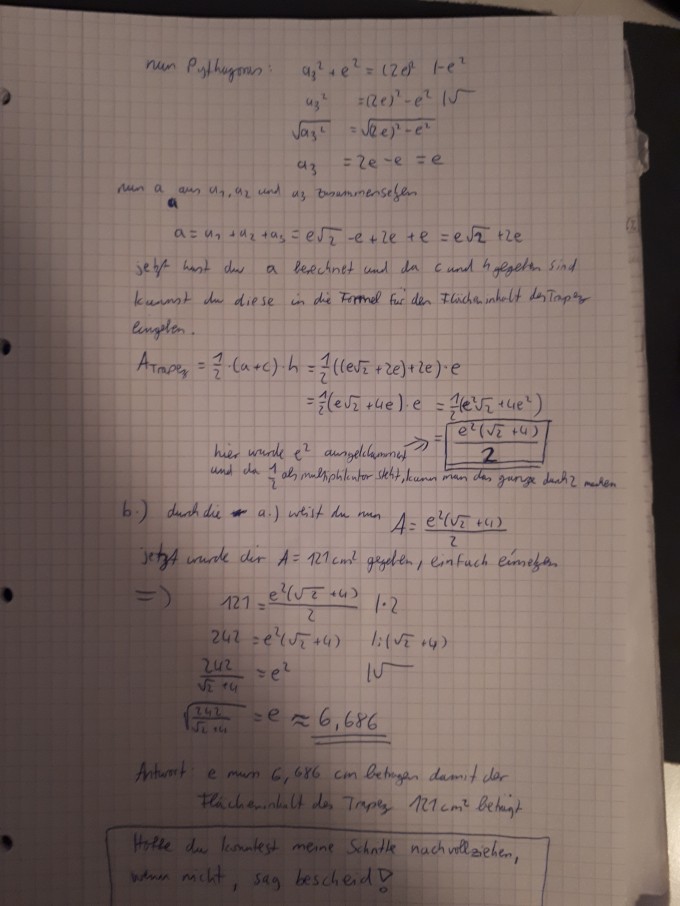 nun Pythagoras: a₃² + e² = (2e)² |-e²
a₃² = (2e)² - e² |√
√a₃² = √(2e)² - e²
a₃ = 2e - e = e
nun a aus a₁, a₂ und a₃ zusammensetzen
a
a = a₁ + a₂ + a₃ = e√2 - e + 2e + e = e√2 + 2e
jetzt hast du a berechnet und da c und h gegeben sind
kannst du diese in die Formel für den Flächeninhalt des Trapez
eingeben.
A Trapez = 1/2 · (a+c) · h = 1/2 ((e√2 + 2e) + 2e) · e
= 1/2 (e√2 + 4e) · e = 1/2 (e²√2 + 4e²)
hier wurde e² ausgeklammert => = e²(√2 + 4) / 2
und da 1/2 als multiplikator steht, kann man das ganze durch 2 machen
b.) durch die a.) weist du nun A = e²(√2 + 4) / 2
jetzt wurde dir A = 121 cm² gegeben, einfach einsetzen
=> 121 = e²(√2 + 4) / 2 |·2
242 = e²(√2 + 4) |:(√2 + 4)
242 / √2 + 4 = e² |√
√242 / √2 + 4 = e ≈ 6,686
Antwort: e muss 6,686 cm betragen damit der
Flächeninhalt des Trapez 121 cm² beträgt
Hoffe du konntest meine Schritte nachvollziehen,
wenn nicht, sag bescheid!